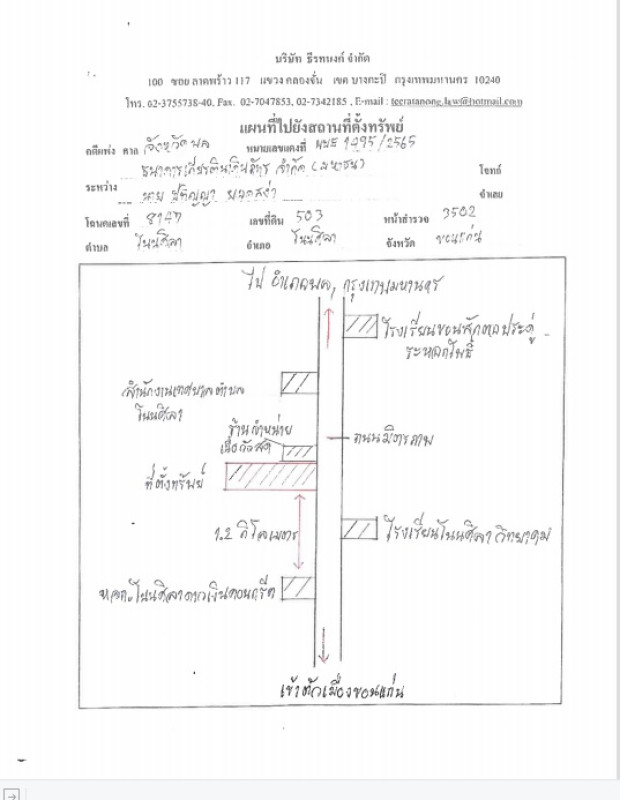 บริษัท ธีรทนงค์ จำกัด
100 ซอย ลาดพร้าว 117 แขวง คลองจั่น เขต บางกะปิ กรุงเทพมหานคร 10240
โทร. 02-3755738-40, Fax. 02-7047853, 02-7342185 , E-mail : teeratanong.law@hotmail.com
แผนที่ไปยังสถานที่ตั้งทรัพย์
คดีแพ่ง ศาล จังหวัดพล หมายเลขแดงที่ ผบE 1495/2565
ธนาคารเกียรตินาคินภัทร จำกัด (มหาชน) โจทก์
ระหว่าง
นาย ปัญญา จำเลย
โฉนดเลขที่ 8147 เลขที่ดิน 503 หน้าสำรวจ 3502
ตำบล โนนศิลา อำเภอ โนนศิลา จังหวัด ขอนแก่น
ไป อำเภอพล, กรุงเทพมหานคร
โรงเรียนขอนสักดลประดู่
ระหอกโพธิ์
สำนักงานเทศบาลตำบล
โนนศิลา
ร้านจำหน่าย
เนื้อวัวสด
ถนนมิตรภาพ
ที่ตั้งทรัพย์
1.2 กิโลเมตร
โรงเรียนโนนศิลาวิทยาคม
โนนศิลาดาวเงินคอนกรีต
เข้าตัวเมืองขอนแก่น